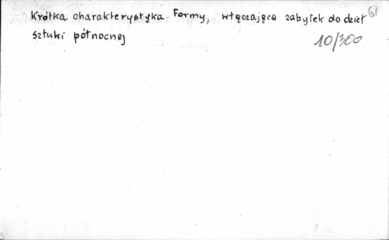 Krótka charakterystyka Formy, włączająca zabytek do dzieł
sztuki północnej
10/300